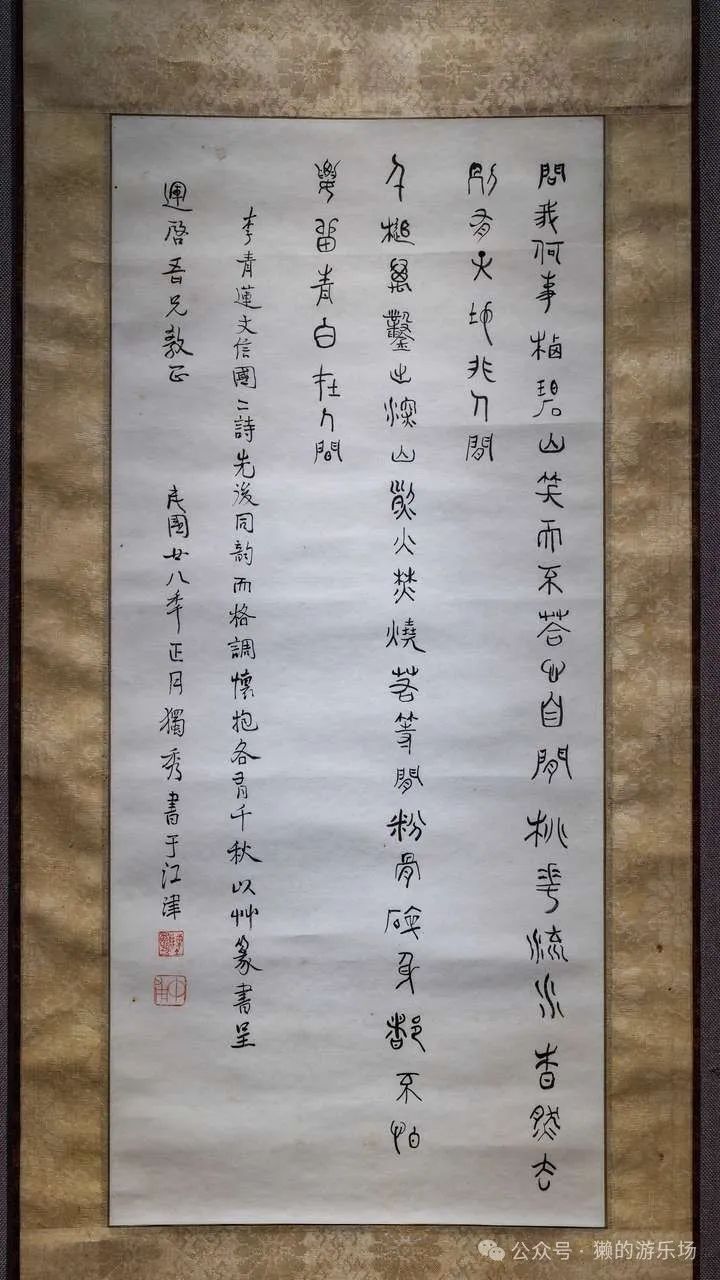 問我何事栖碧山笑而不荅心自閒桃華流水杳然去
別有天地非人間
千槌萬鑿出深山烈火焚燒若等閒粉骨碎身都不怕
要留青白在人間
李青蓮文信國二詩先後同韵而格調懷抱各有千秋以艸篆書呈
運啓吾兄教正
民國廿八秊正月獨秀書于江津
公众号·獭的游乐场